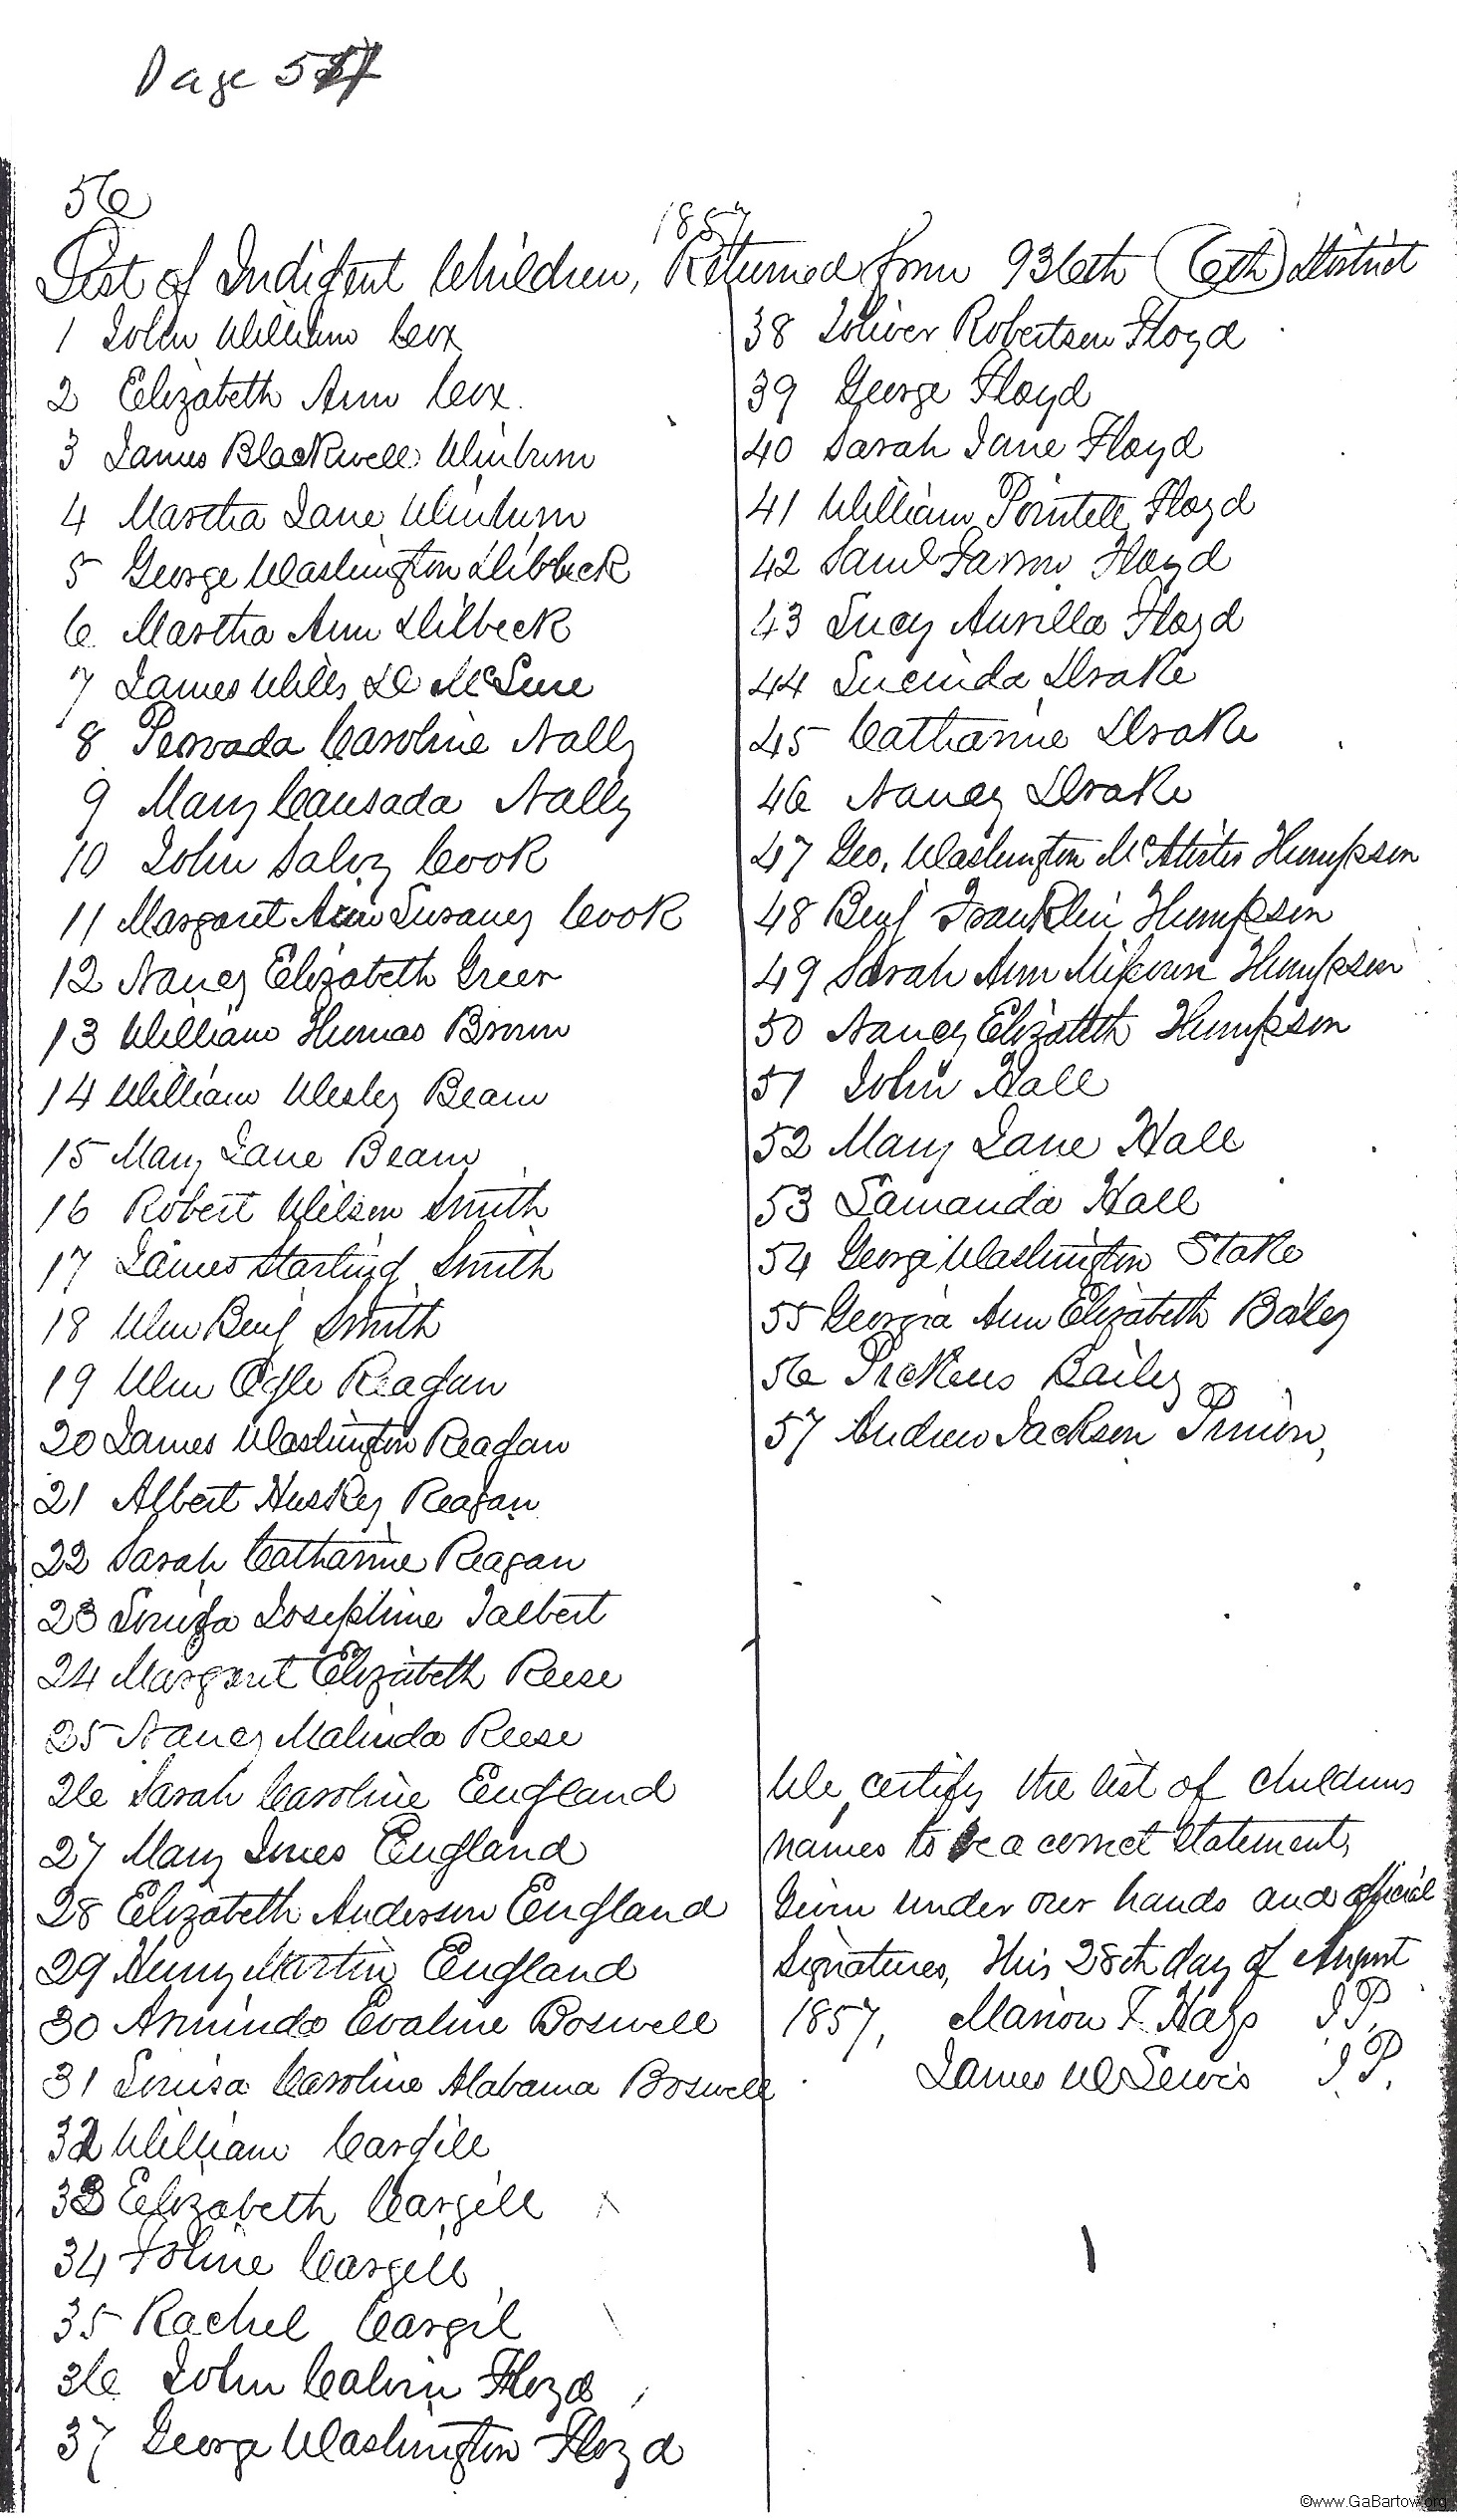 Page 57
56
1857
List of Indigent Children, Returned from 936th (6th) District
1 John William Cox
2 Elizabeth Ann Cox.
3 James Blackwell
4 Martha Jane
5 George Washington Dilbeck
6 Martha Ann Dilbeck
7 James Wills
8 Caroline Nally
9 Mary Causada Nally
10 John Cook
11 Margaret Ann Susaney Cook
12 Nancy Elizabeth Green
13 William Thomas Brown
14 William Wesley Beam
15 Mary Jane Beam
16 Robert Wilson Smith
17 James Starling Smith
18 Wm Benj Smith
19 Wm Ogle Reagan
20 James Washington Reagan
21 Albert Huskey Reagan
22 Sarah Catharine Reagan
23 Josephine Talbert
24 Margaret Elizabeth Reese
25 Nancy Malinda Reese
26 Sarah Caroline England
27 Mary England
28 Elizabeth Anderson England
29 Henry Martin England
30 Evaline Boswell
31 Louisa Caroline Alabama Boswell
32 William Cargill
33 Elizabeth Cargill
34 Cargill
35 Rachel Cargil
36 John Calvin Floyd
37 George Washington Floyd
38 Robertson Floyd
39 George Floyd
40 Sarah Jane Floyd
41 William Floyd
42 Saml Floyd
43 Lucy Floyd
44 Lucinda Drake
45 Catharine Drake
46 Nancy Drake
47 Geo. Washington Humpson
48 Benj Franklin Humpson
49 Sarah Ann Humpson
50 Nancy Elizabeth Humpson
51 John Hall
52 Mary Jane Hall
53 Hall
54 George Washington
55 Georgia Ann Elizabeth Bailey
56 Pickens Bailey
57 Andrew Jackson
We certify the list of childrens
names to be a correct statement,
Given under our hands and official
signatures, this 28th day of August
1857, Marion F. Hays J.P.
James W Lewis J.P.
©www.GaBartow.org